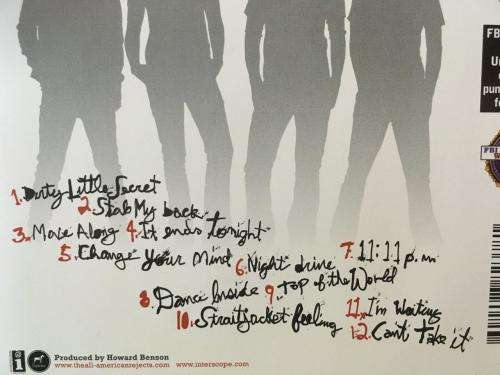 FBI
1. Dirty Little Secret
2. Stab My back
3. Move Along 4. It ends tonight
5. Change your Mind 6. Night drive 7. 11:11 p.m
8. Dance Inside 9. Top of the World
10. Straitjacket feeling 11. I'm Waiting
12. Can't Take it
Produced by Howard Benson
www.theall-americanrejects.com www.interscope.com